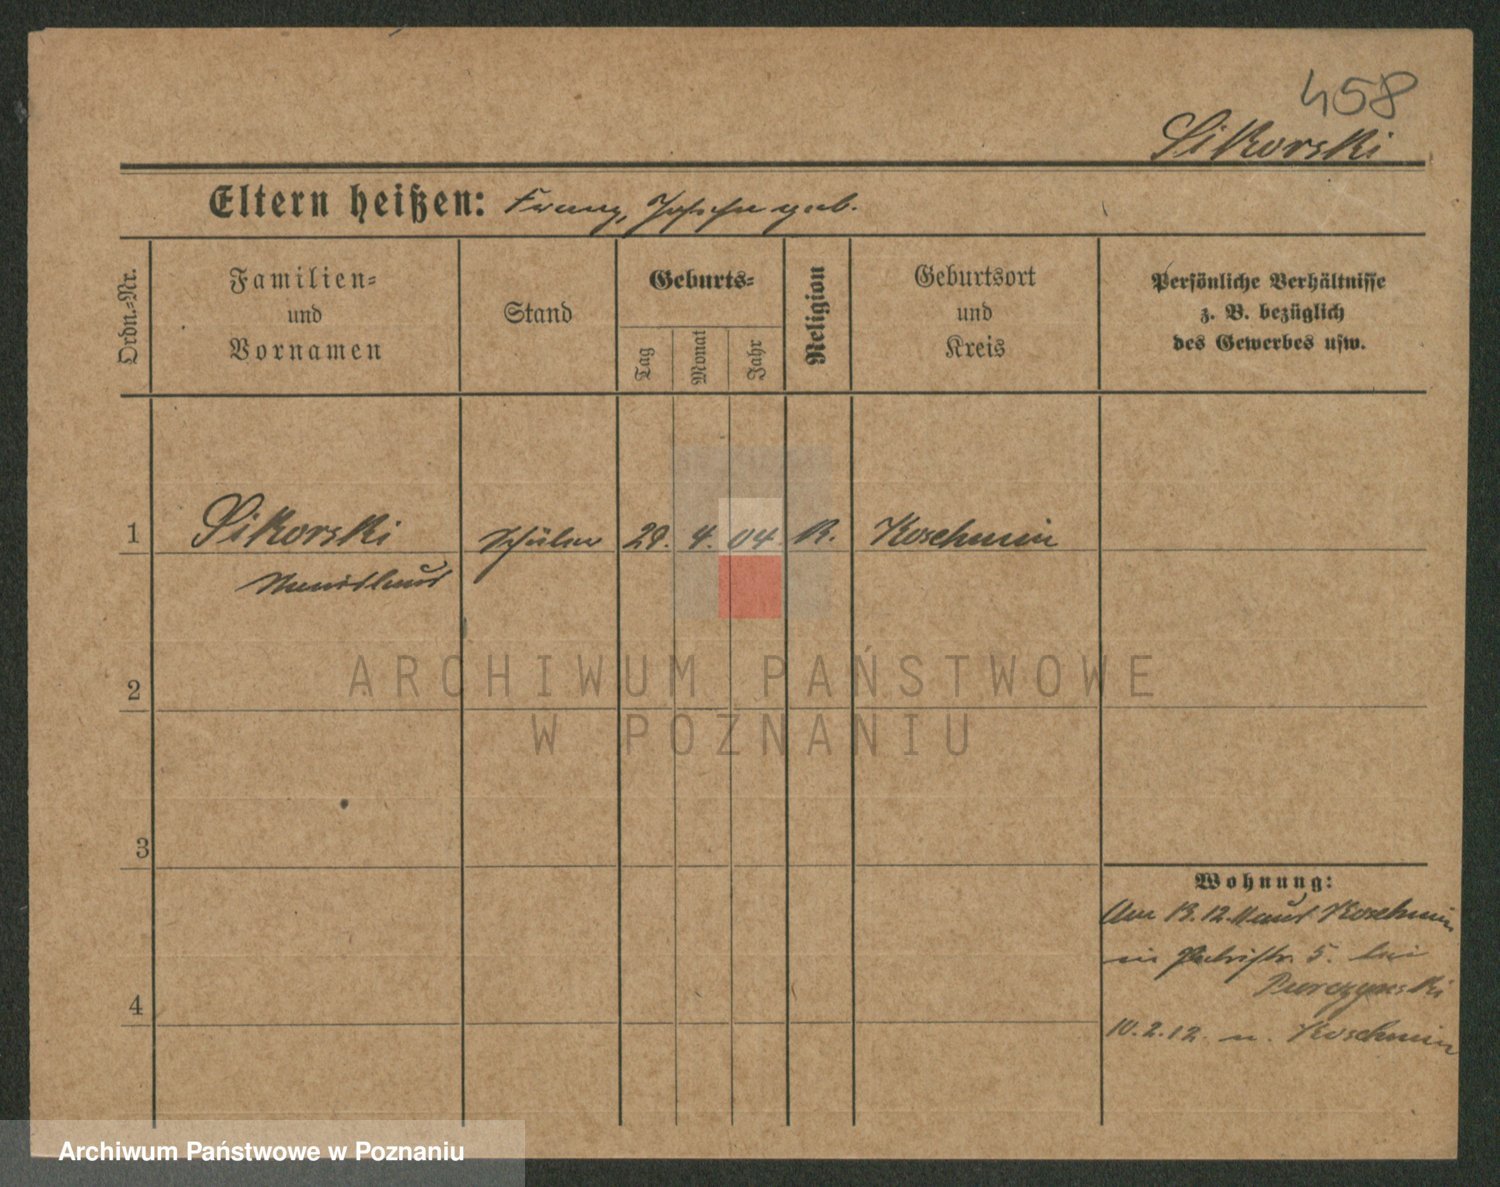 458
Sikorski
Eltern heißen: Franz, Josefa geb.
Ordn.=Nr.
Familien=
und
Vornamen
Stand
Geburts=
Tag
Monat
Jahr
Religion
Geburtsort
und
Kreis
Persönliche Verhältnisse
z. B. bezüglich
des Gewerbes usw.
1 Sikorski Schüler 29. 4. 04 R. Koschmin
2
3
4
Wohnung:
Koschmin
5. bei
10.2.12. n. Koschmin
ARCHIWUM PAŃSTWOWE
W POZNANIU
Archiwum Państwowe w Poznaniu